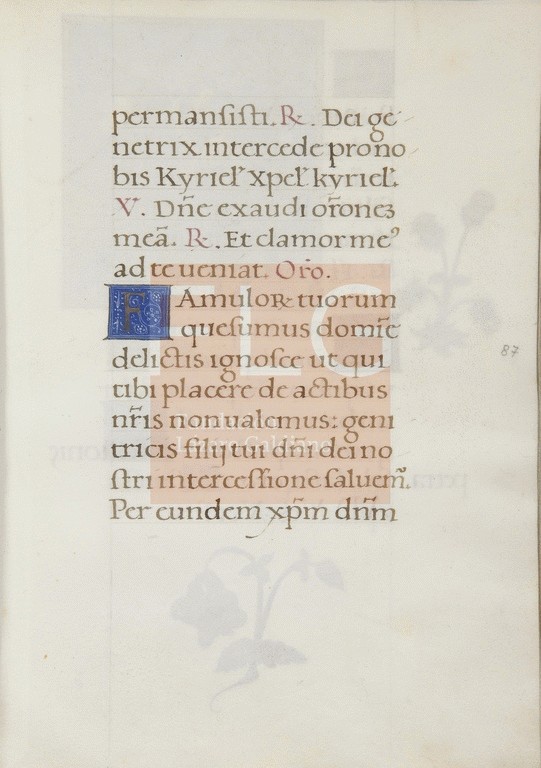 permansisti. ℞. Dei ge
netrix intercede pro no
bis Kyriel' xpel' kyriel'.
V. Dñe exaudi oroñez
meã. ℞. Et clamor me⁹
ad te ueniat. Oro.
FAmuloꝝ tuorum
quesumus domĩe
delictis ignosce ut qui
tibi placere de actibus
nr̃is non ualemus: geni
tricis filij tui dñi dei no
stri intercessione saluem̃.
Per eundem xp̃m dñm
87
FLC